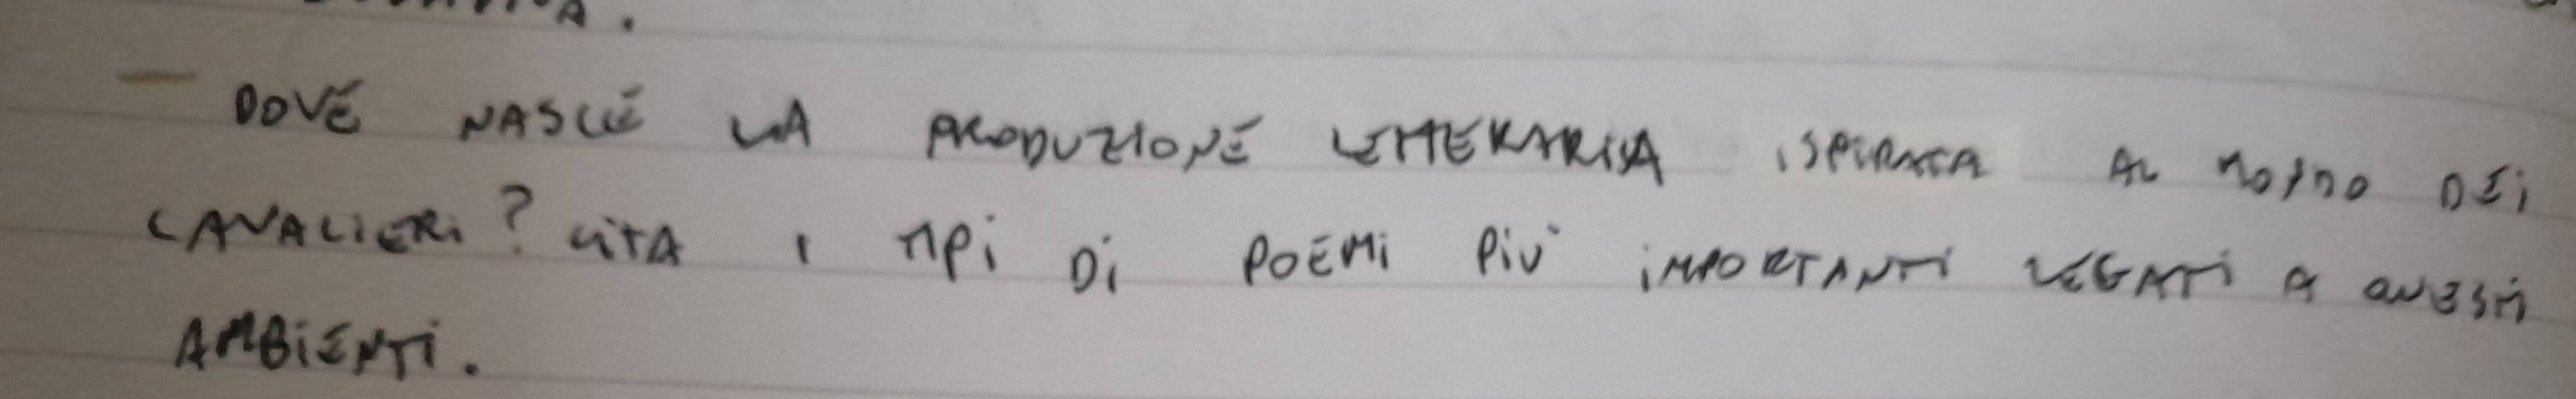 DOVE NASCE LA PRODUZIONE LETTERARIA ISPIRATA AL MONDO DEI
CAVALIERI? CITA I TIPI DI POEMI PIU' IMPORTANTI LEGATI A QUESTI
AMBIENTI.